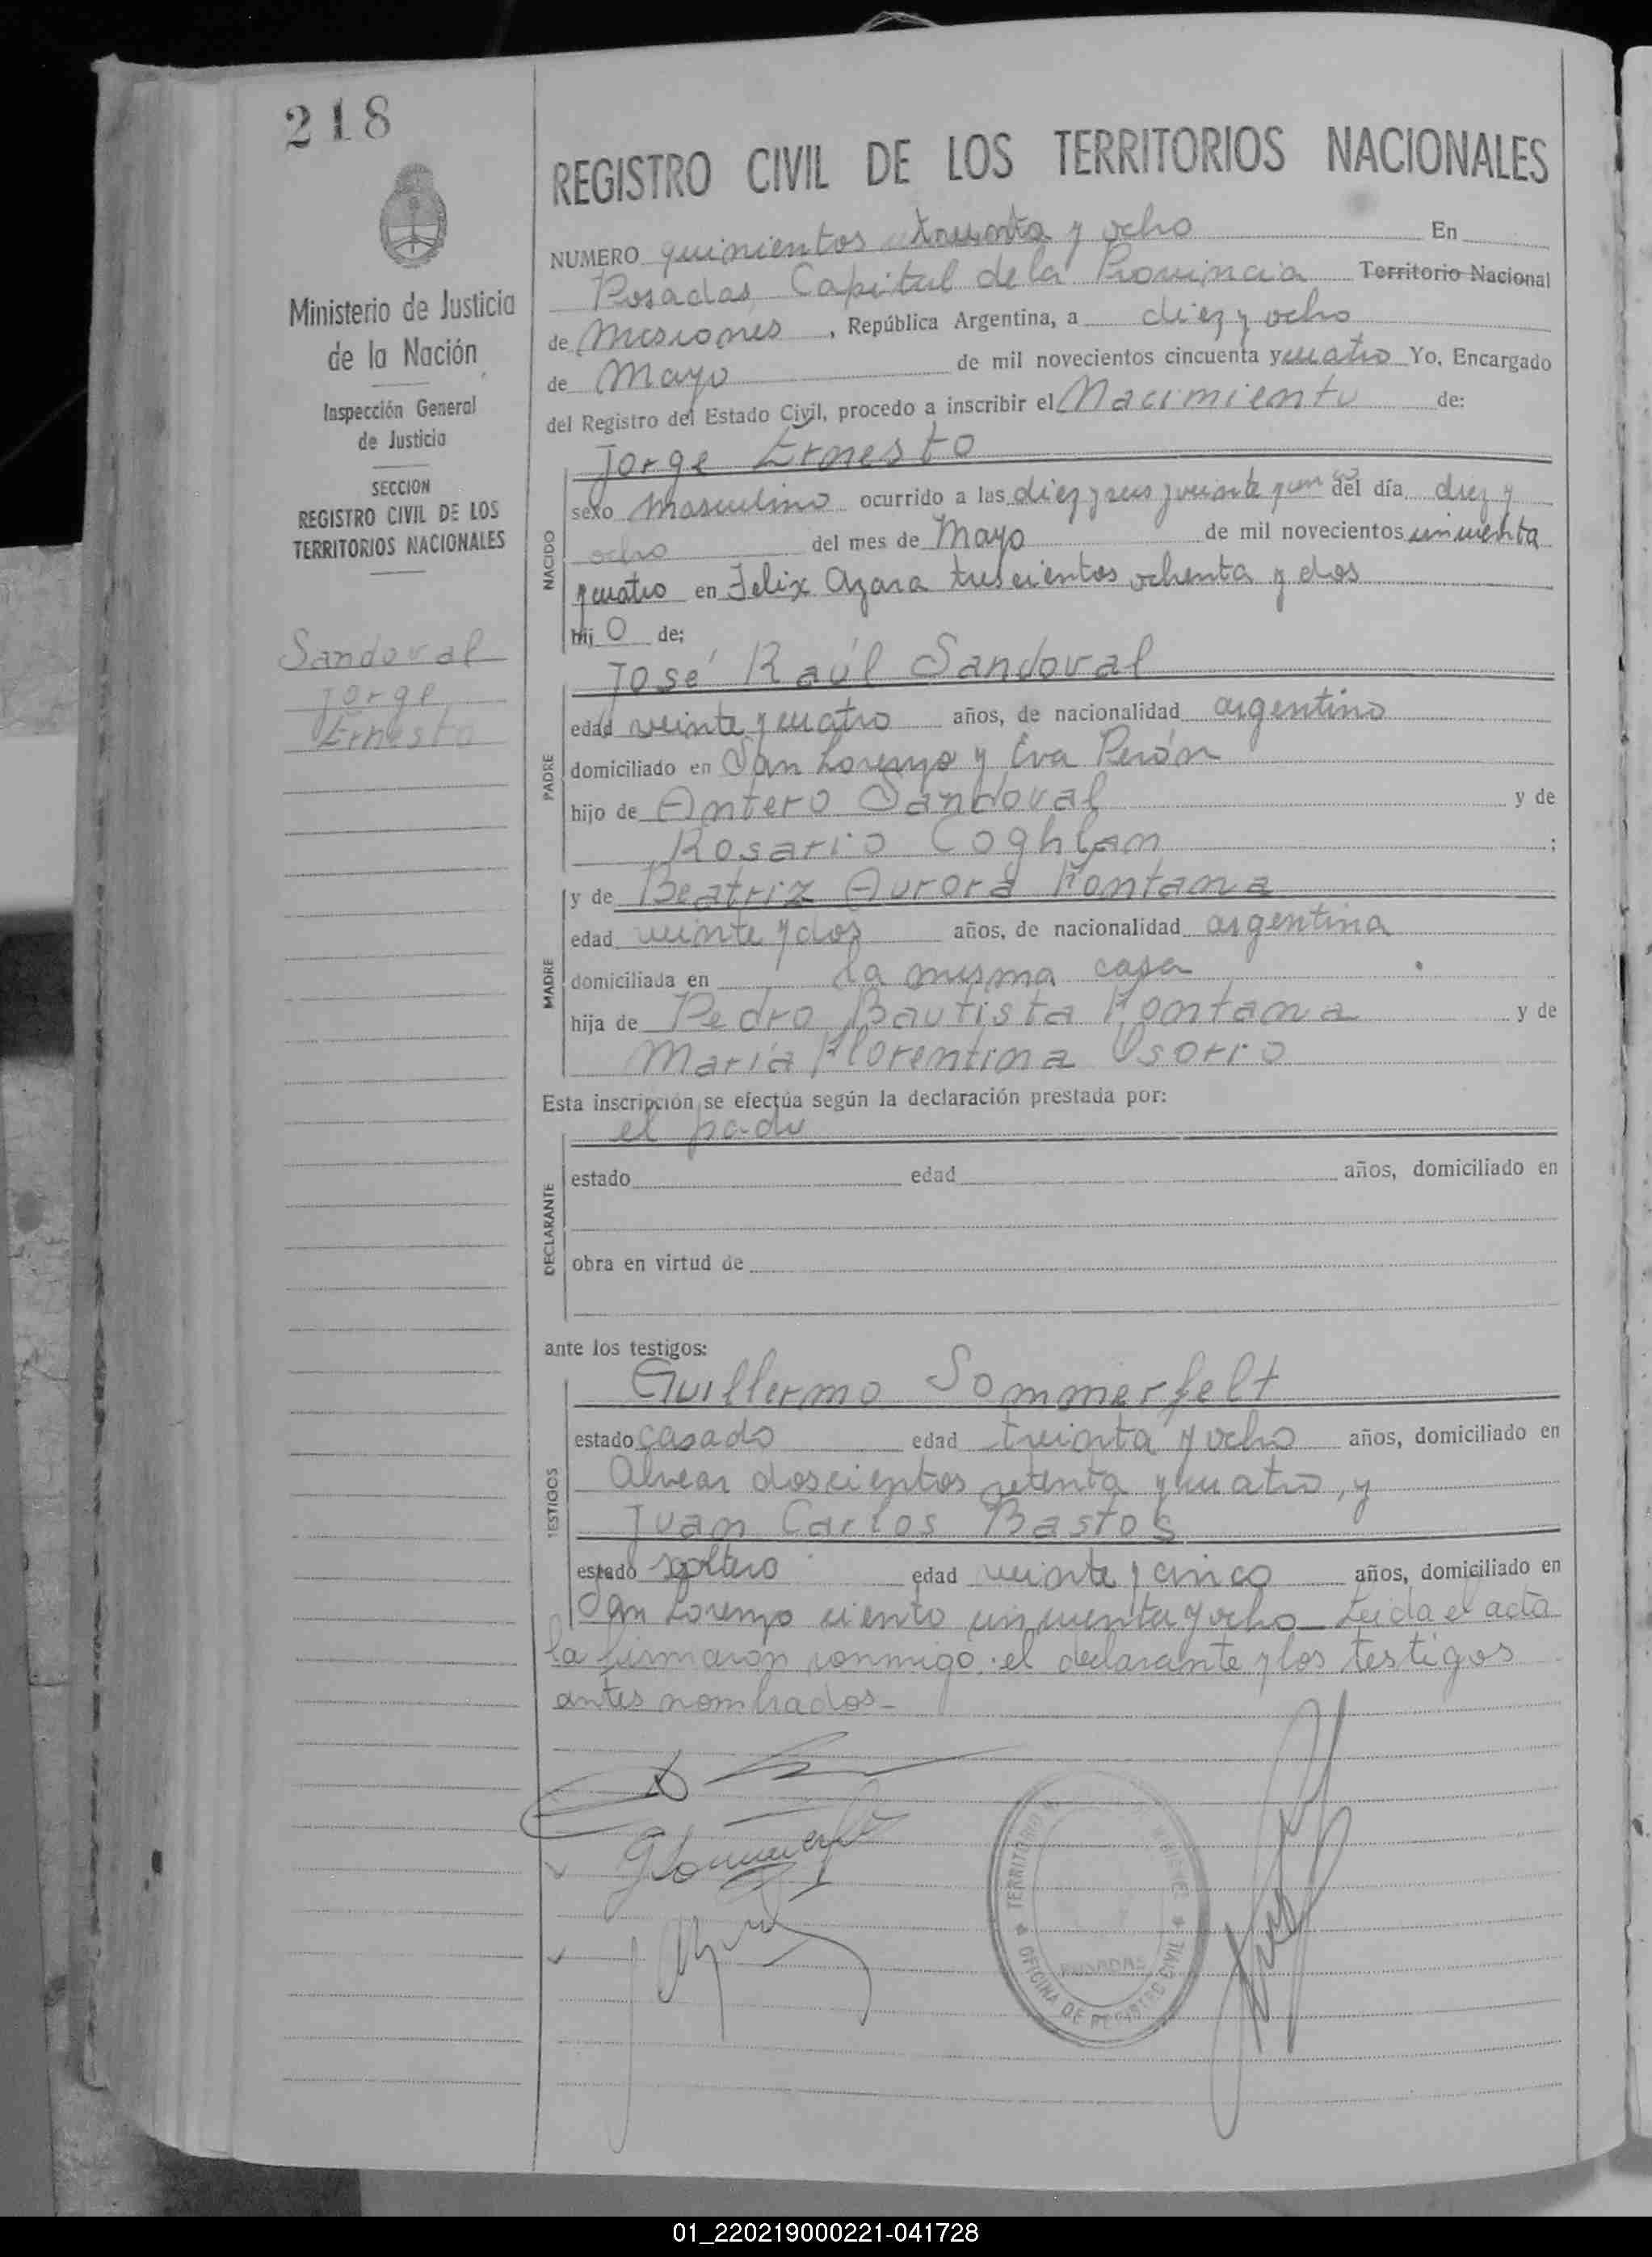 218
Ministerio de Justicia
de la Nación
Inspección General
de Justicia
SECCION
REGISTRO CIVIL DE LOS
TERRITORIOS NACIONALES
Sandoval
Jorge
Ernesto
REGISTRO CIVIL DE LOS TERRITORIOS NACIONALES
NUMERO quinientos treinta y ocho En
Posadas Capital de la Provincia Territorio Nacional
de Misiones, República Argentina, a diez y ocho
de Mayo de mil novecientos cincuenta y cuatro Yo, Encargado
del Registro del Estado Civil, procedo a inscribir el Nacimiento de:
Jorge Ernesto
NACIDO
sexo masculino ocurrido a las diez y seis y veinte y un del día diez y
ocho del mes de Mayo de mil novecientos cincuenta
y cuatro en Felix Azara trescientos ochenta y dos
hij o de;
José Raúl Sandoval
PADRE
edad veinte y cuatro años, de nacionalidad argentino
domiciliado en San Lorenzo y Eva Perón
hijo de Antero Sandoval y de
Rosario Coghlan ;
y de Beatriz Aurora Fontana
MADRE
edad veinte y dos años, de nacionalidad argentina
domiciliada en la misma casa
hija de Pedro Bautista Fontana y de
María Florentina Osorio
Esta inscripción se efectúa según la declaración prestada por:
el padre
DECLARANTE
estado edad años, domiciliado en
obra en virtud de
ante los testigos:
Guillermo Sommerfelt
TESTIGOS
estado casado edad treinta y ocho años, domiciliado en
Alvear doscientos setenta y cuatro, y
Juan Carlos Bastos
estado soltero edad veinte y cinco años, domiciliado en
San Lorenzo ciento cincuenta y ocho_ Leida el acta
la firmaron conmigo el declarante y los testigos
antes nombrados_
TERRITORIO
OFICINA DE REGISTRO CIVIL
POSADAS
01_220219000221-041728